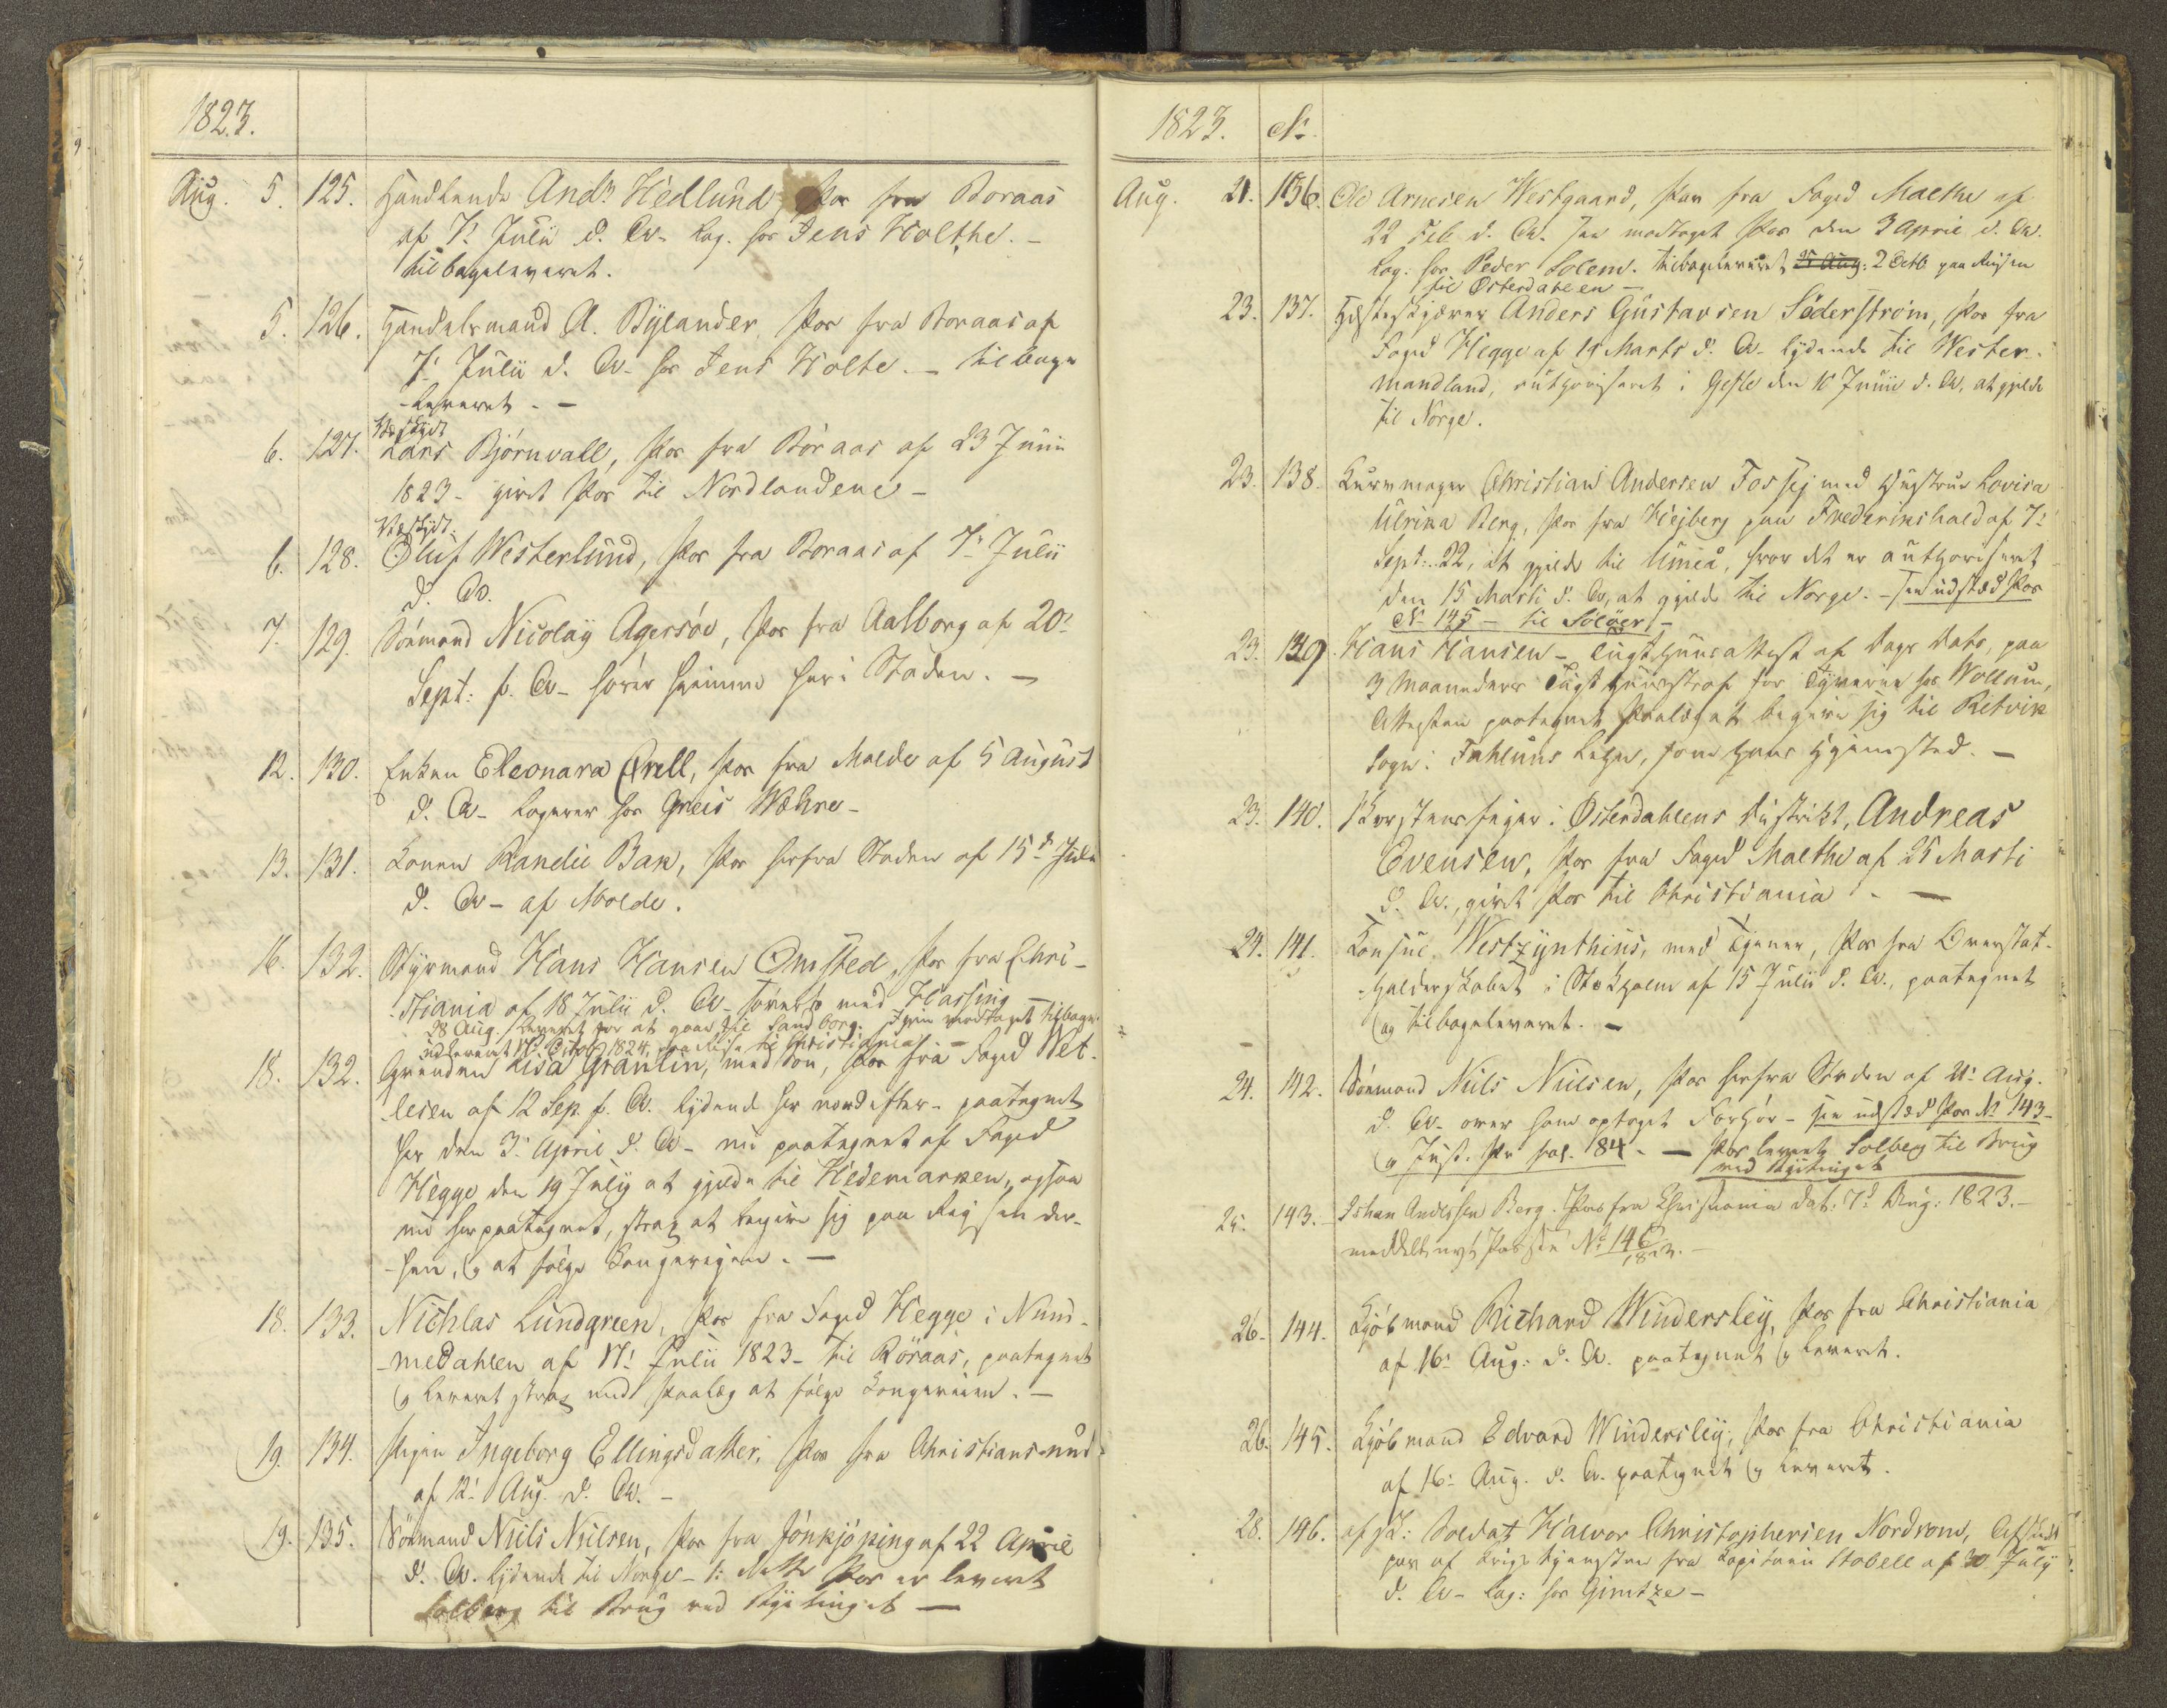 1823.
Aug. 5. 125. Handlende Andr Hedlund, Pas fra Boraas
af 7. Julii d. A. log. hos Jens Holthe. –
tilbageleveret.
5. 126. Handelsmand A. Bylander, Pas fra Boraas af
7. Julii d. A. hos Jens Holte. – tilbage
-leveret. –
6. 127. Lars Björnvall, Pas fra Boraas af 23 Junii
1823 – givet Pas til Nordlandene –
6. 128. Oluf Westerlund, Pas fra Boraas af 7. Julii
d. A.
7. 129. Sömand Nicolay Agersöe, Pas fra Aalborg af 20.
Sept: f. A. hörer hjemme her i Staden. –
12. 130. Enken Eleonara Grell, Pas fra Molde af 5 August
d. A. logerer hos Greis Wæhre –
13. 131. Konen Randie Bak, Pas herfra Staden af 15.
d. A. – af Molde.
16. 132. Styrmand Hans Hansen Omsted, Pas fra Chri-
stiania af 18 Julii d. A. – med Hassing
28 Aug. leveret for at gaae til Sandborg. Igjen modtaget tilbage.
udleveret 1824, paa Reise til Christiania –
18. 132. Qvinden Lisa Granlin, med Sön, Pas fra Foged Wet-
lesen af 12 Sep. f. A. lydende her nordefter – paategnet
her den 3. April d. A. – nu paategnet af Foged
Hegge den 19 July at gjelde til Hedemarken, ogsaa
nu her paategnet, strax at begive sig paa Reisen der-
hen, og at fölge Kongeveien. –
18. 133. Nichlas Lundgreen, Pas fra Foged Hegge i Num-
-medahlen af 17. Julii 1823 – til Röraas, paategnet
og leveret strax med Paalæg at fölge Kongeveien. –
19. 134. Pigen Ingeborg Ellingsdatter, Pas fra Christiansund
af 12. Aug. d. A. –
19. 135. Sömand Niels Nielsen, Pas fra Jönkjöping af 22 April
d. A. lydende til Norge – dette Pas er leveret
Solberg til Brug ved –
1823. No
Aug. 21. 136. Ole Arnesen Westgaard, Pas fra Foged Maethe af
22 Feb d. A. modtaget Pas den 3 April d. A.
log: hos Peder Solem. tilbageleveret 25 Aug: 2 Octb. paa Reisen
til Österdalen –
23. 137. Anders Gustavsen Söderström, Pas fra
Foged Hegge af 19 Marts d. A. lydende til Wester-
mandland, authoriseret i Gefle den 16 Junii d. A. at gjelde
til Norge.
23. 138. Kurvmager Christian Andersen Fossej med Hustrue Lovisa
Ulrika Berg, Pas fra Hejberg paa Frederikshald af 7.
Sept: 22, at gjelde til Umeå, hvor det er authoriseret
den 15 Marti d. A., at gjelde til Norge. – see udstæd Pas
No 145 – til Solöer –
23. 139. Hans Hansen – Tugthuusattest af Dags Dato, paa
3 Maaneders Tugthuusstraf for Tyverie hos Wollum,
Attesten paategnet Paalæg at begive sig til Retvik
Sogn i Fahluns Lehn, som hans Hjemsted. –
23. 140. Skorsteensfejer i Österdahlens District, Andreas
Evensen, Pas fra Foged Maethe af 25 Marti
d. A., givet Pas til Christiania –
24. 141. Konsul Westzynthius, med Tjener, Pas fra Overstat-
-holderskabet i Stokholm af 15 Julii d. A., paategnet
og tilbageleveret. –
24. 142. Sömand Niels Nielsen, Pas herfra Staden af 21. Aug.
d. A. – over ham optaget Forhör – see udstæd Pas No 143 –
og Just. Pr. fol. 184. – Pas leveret Solberg til Brug
ved
25. 143. – Johan Andersen Berg. Pas fra Christiania dat: 7. Aug: 1823. –
meddelt nyt Pas see No 146
1823. –
26. 144. Kjöbmand Richard Windersley, Pas fra Christiania
af 16. Aug: d. A. paategnet og leveret.
26. 145. Kjöbmand Edvard Windersley, Pas fra Christiania
af 16. Aug. d. A. paategnet og leveret.
28. 146. afsk: Soldat Halvor Christophersen Nordrom, Afskeds
pas af Krigstjenesten fra Kapitain Stabell af 30 July
d. A. – log: hos Gimtze –